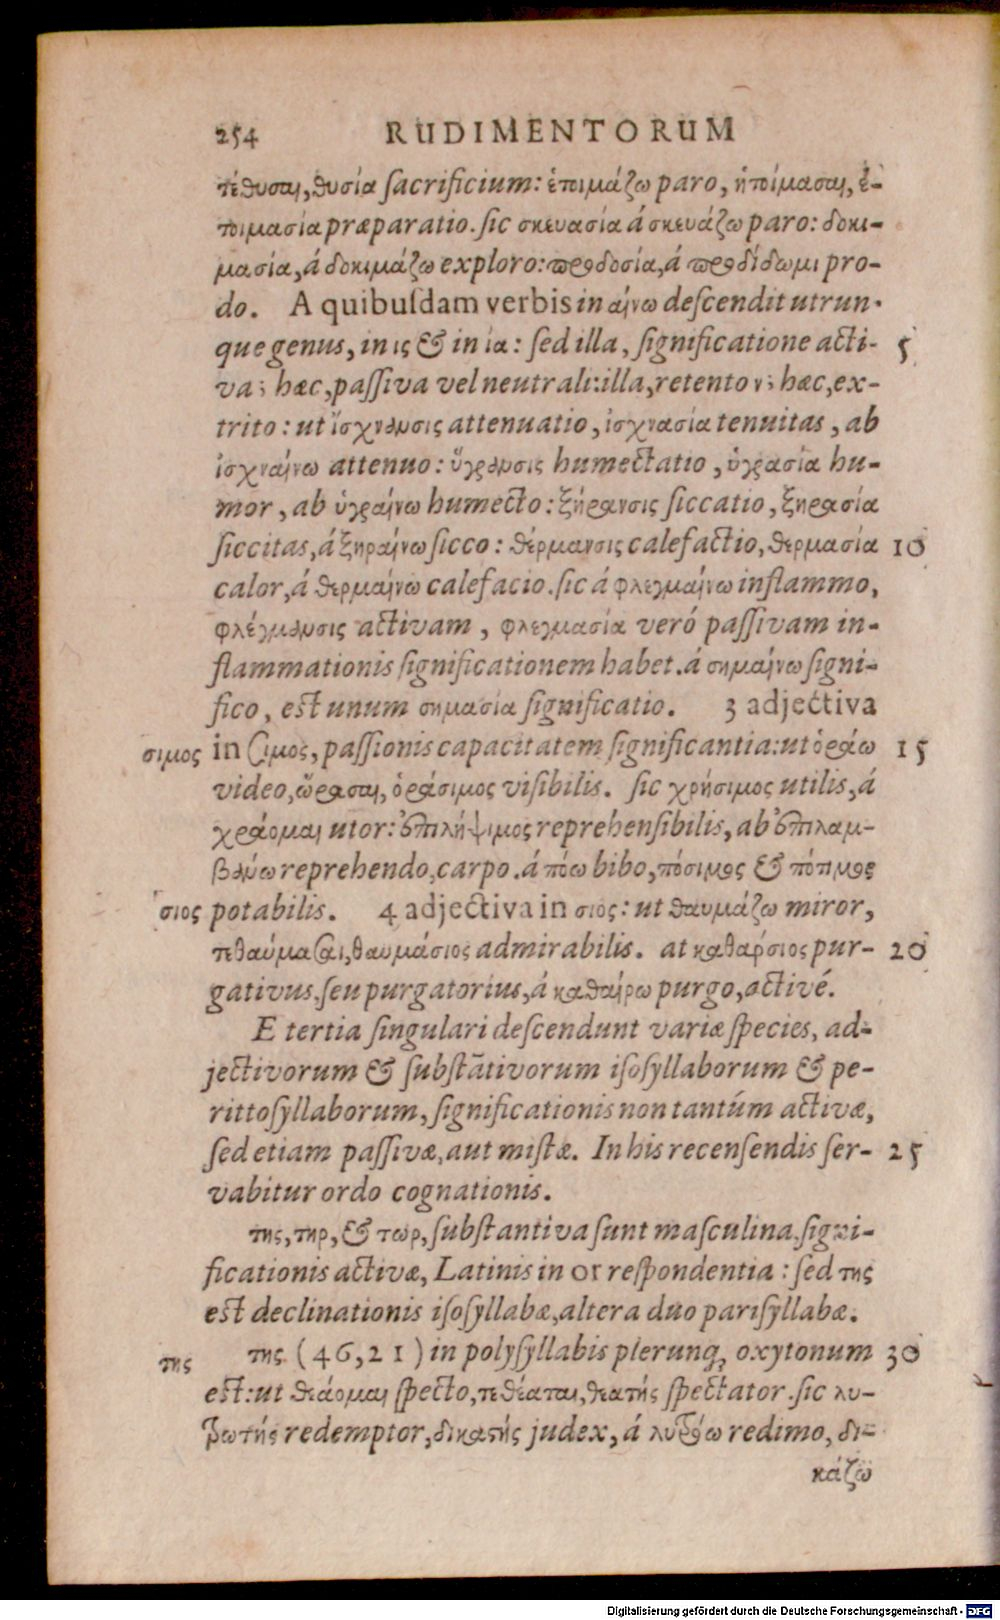 254 RUDIMENTORUM
τέθυσαι, θυσία sacrificium: ἑτοιμάζω paro, ἡτοίμασαι, ἑ-
τοιμασία præparatio. sic σκευασία á σκευάζω paro: δοκι-
μασία, á δοκιμάζω exploro: προδοσία, á προδίδωμι pro-
do. A quibusdam verbis in αίνω descendit utrun-
que genus, in ις & in ία: sed illa, significatione acti- 5
va; hæc, passiva vel neutrali: illa, retento ν; hæc, ex-
trito: ut ἴσχνανσις attenuatio, ἰσχνασία tenuitas, ab
ἰσχναίνω attenuo: ὕγρανσις humectatio, ὑγρασία hu-
mor, ab ὑγραίνω humecto: ξήρανσις siccatio, ξηρασία
siccitas, á ξηραίνω sicco: θέρμανσις calefactio, θερμασία 10
calor, á θερμαίνω calefacio. sic á φλεγμαίνω inflammo,
φλέγμανσις activam, φλεγμασία veró passivam in-
flammationis significationem habet. á σημαίνω signi-
fico, est unum σημασία significatio. 3 adjectiva
σιμος in σιμος, passionis capacitatem significantia: ut ὁράω 15
video, ὥρασαι, ὁράσιμος visibilis. sic χρήσιμος utilis, á
χράομαι utor: ἐπιλήψιμος reprehensibilis, ab ἐπιλαμ-
βάνω reprehendo, carpo. á πόω bibo, πόσιμος & πότιμος
σιος potabilis. 4 adjectiva in σιος: ut θαυμάζω miror,
τεθαύμασαι, θαυμάσιος admirabilis. at καθάρσιος pur- 20
gativus, seu purgatorius, á καθαίρω purgo, activé.
E tertia singulari descendunt variæ species, ad-
jectivorum & substātivorum isosyllaborum & pe-
rittosyllaborum, significationis non tantúm activæ,
sed etiam passivæ, aut mistæ. In his recensendis ser- 25
vabitur ordo cognationis.
της, τηρ, & τωρ, substantiva sunt masculina, signi-
ficationis activæ, Latinis in or respondentia: sed της
est declinationis isosyllabæ, altera duo parisyllabæ.
της της (46, 21) in polysyllabis plerunq; oxytonum 30
est: ut θεάομαι specto, τεθέαται, θεατής spectator. sic λυ-
τρωτής redemptor, δικαστής judex, á λυτρόω redimo, δι-
κάζω
Digitalisierung gefördert durch die Deutsche Forschungsgemeinschaft - DFG